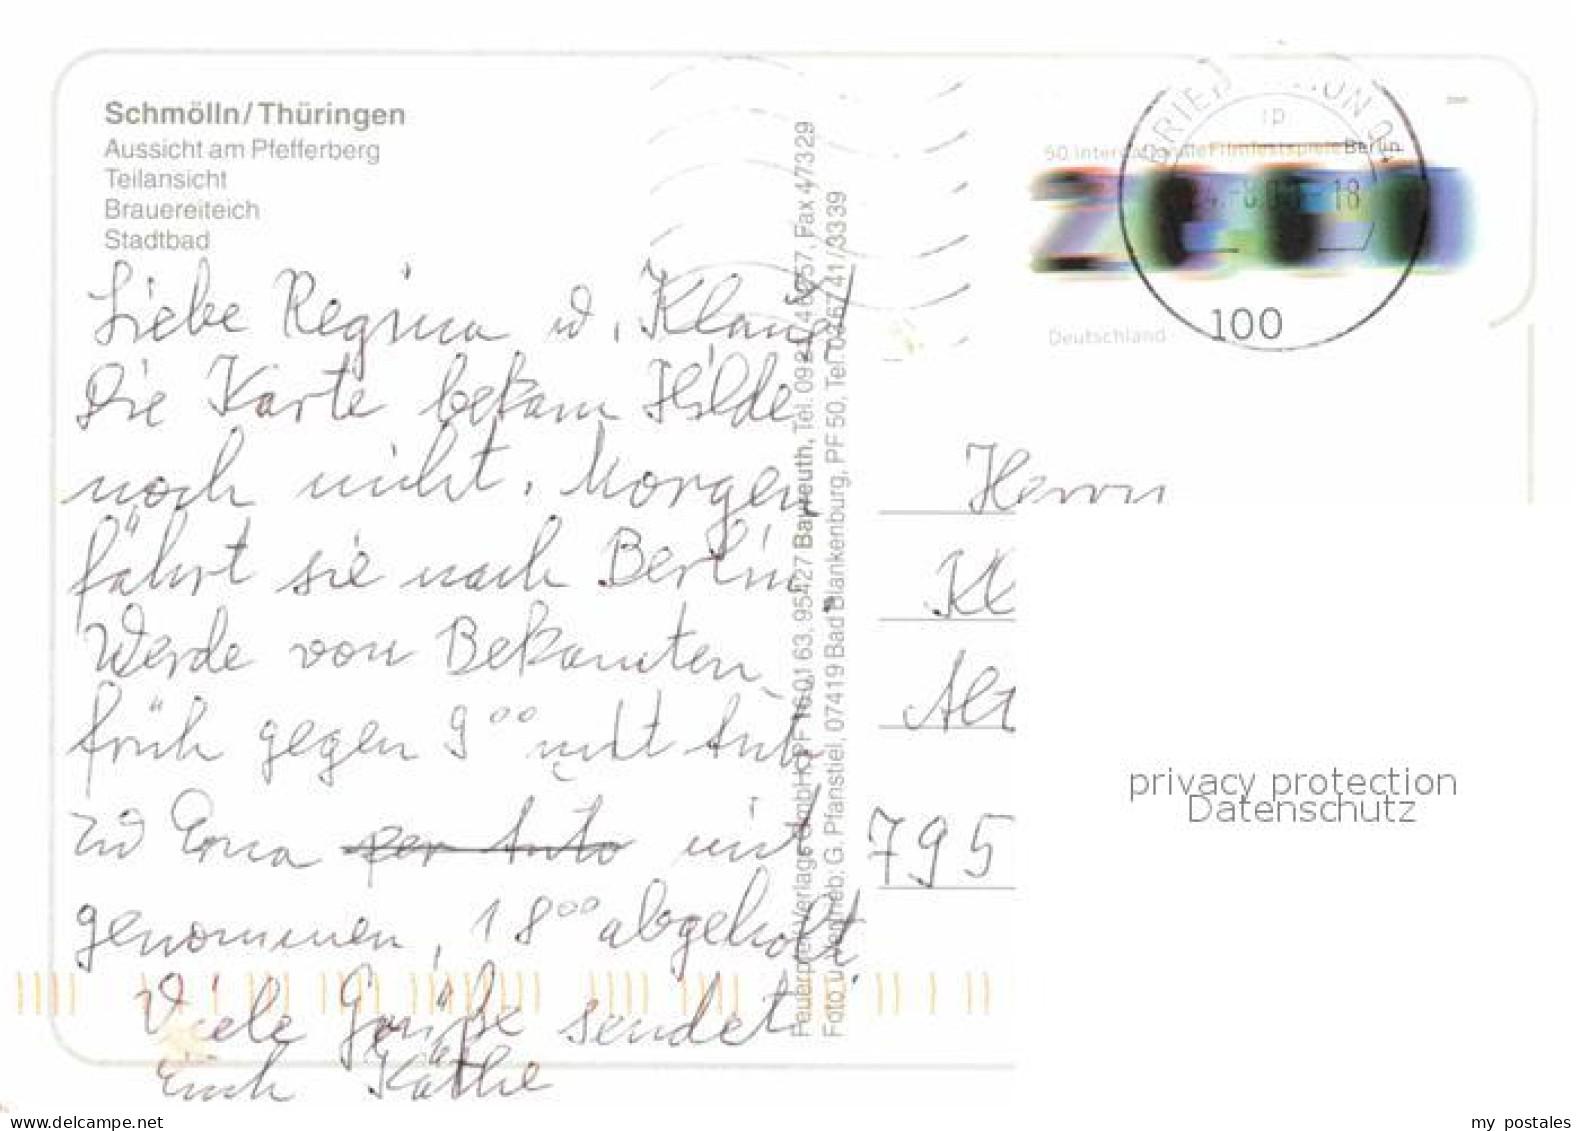 Schmölln/Thüringen
Aussicht am Pfefferberg
Teilansicht
Brauereiteich
Stadtbad
Liebe Regina u. Klaus!
Die Karte bekam Hilde
noch nicht. Morgen
fährt sie nach Berlin.
Werde von Bekannten
früh gegen 9°° mit Auto
zu Erna per Auto mit
genommen, 18°° abgeholt
Viele Grüße sendet
Euch Käthe
Feuerpfeil Verlags GmbH, PF 16 01 63, 95427 Bayreuth, Tel. 0921/ Fax 47329
Foto u. Vertrieb: G. Pfanstiel, 07419 Bad Blankenburg, PF 50, Tel. 036741/3339
50 Internationale Filmfestspiele Berlin
Deutschland
100
18
Herrn
Kl
Alt
795
privacy protection
Datenschutz
www.delcampe.net
my postales